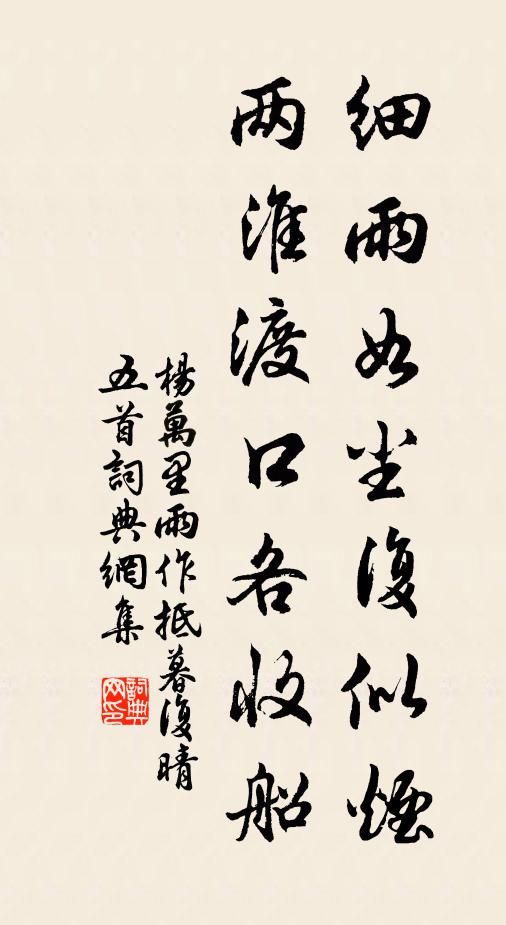 细雨如尘復似煙
两淮渡口各收船
楊萬里雨作抵暮復晴
五首詞典網集
詞典网印